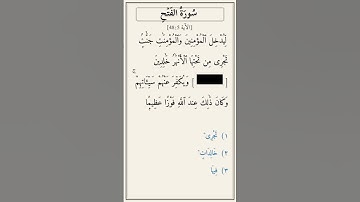 سُورَةُ الفَتْحِ
[الآية 48:5]
لِّيُدْخِلَ ٱلْمُؤْمِنِينَ وَٱلْمُؤْمِنَٰتِ جَنَّٰتٍ
تَجْرِى مِن تَحْتِهَا ٱلْأَنْهَٰرُ خَٰلِدِينَ
[ ] وَيُكَفِّرَ عَنْهُمْ سَيِّـَٔاتِهِمْ ۚ
وَكَانَ ذَٰلِكَ عِندَ ٱللَّهِ فَوْزًا عَظِيمًا
١) تَجْرِى
٢) خَالِدَاتٍ
٣) فِيهَا